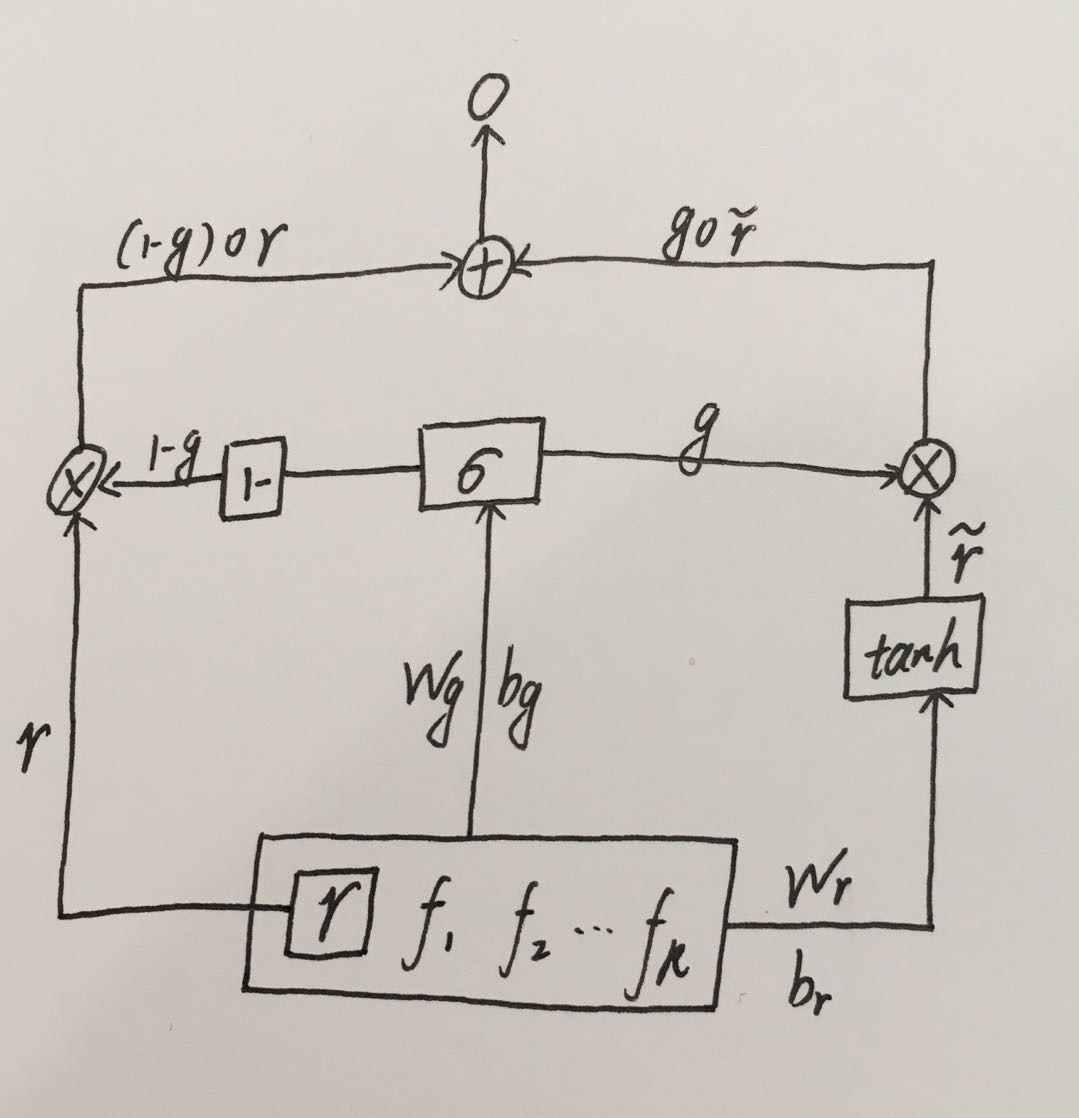 O
(1-g)∘r
g∘r̃
+
×
1-g
1-
σ
g
×
r̃
tanh
Wg bg
r
Wr
r f₁ f₂ ⋯ fₙ
br